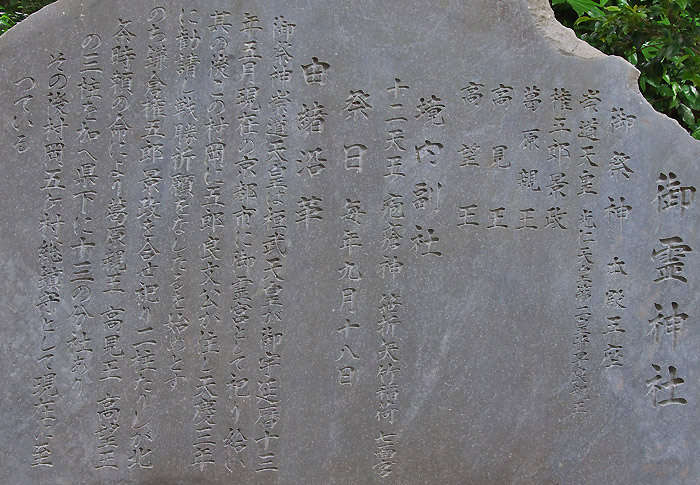 御霊神社
御祭神 本殿五座
崇道天皇 光仁天皇第二皇子早良親王
権五郎景政
葛原親王
高見王
高望王
境内副社
十二天王 疱瘡神 笹折矢竹稲荷 七面宮
祭日 毎年九月十八日
由緒沿革
御祭神崇道天皇は桓武天皇が御宇延暦十三
年五月現在の京都市に御霊宮として祀り給い
其の後この村岡に五郎良文公が住し天慶三年
に勧請し戦勝祈願をなしたるを始めとす
のち鎌倉権五郎景政を合せ祀り二柱たりしが北
条時頼の命により葛原親王 高見王 高望王
の三柱を加へ県下に十三の分社あり
その後村岡五ヶ村総鎮守として現在に至
つている